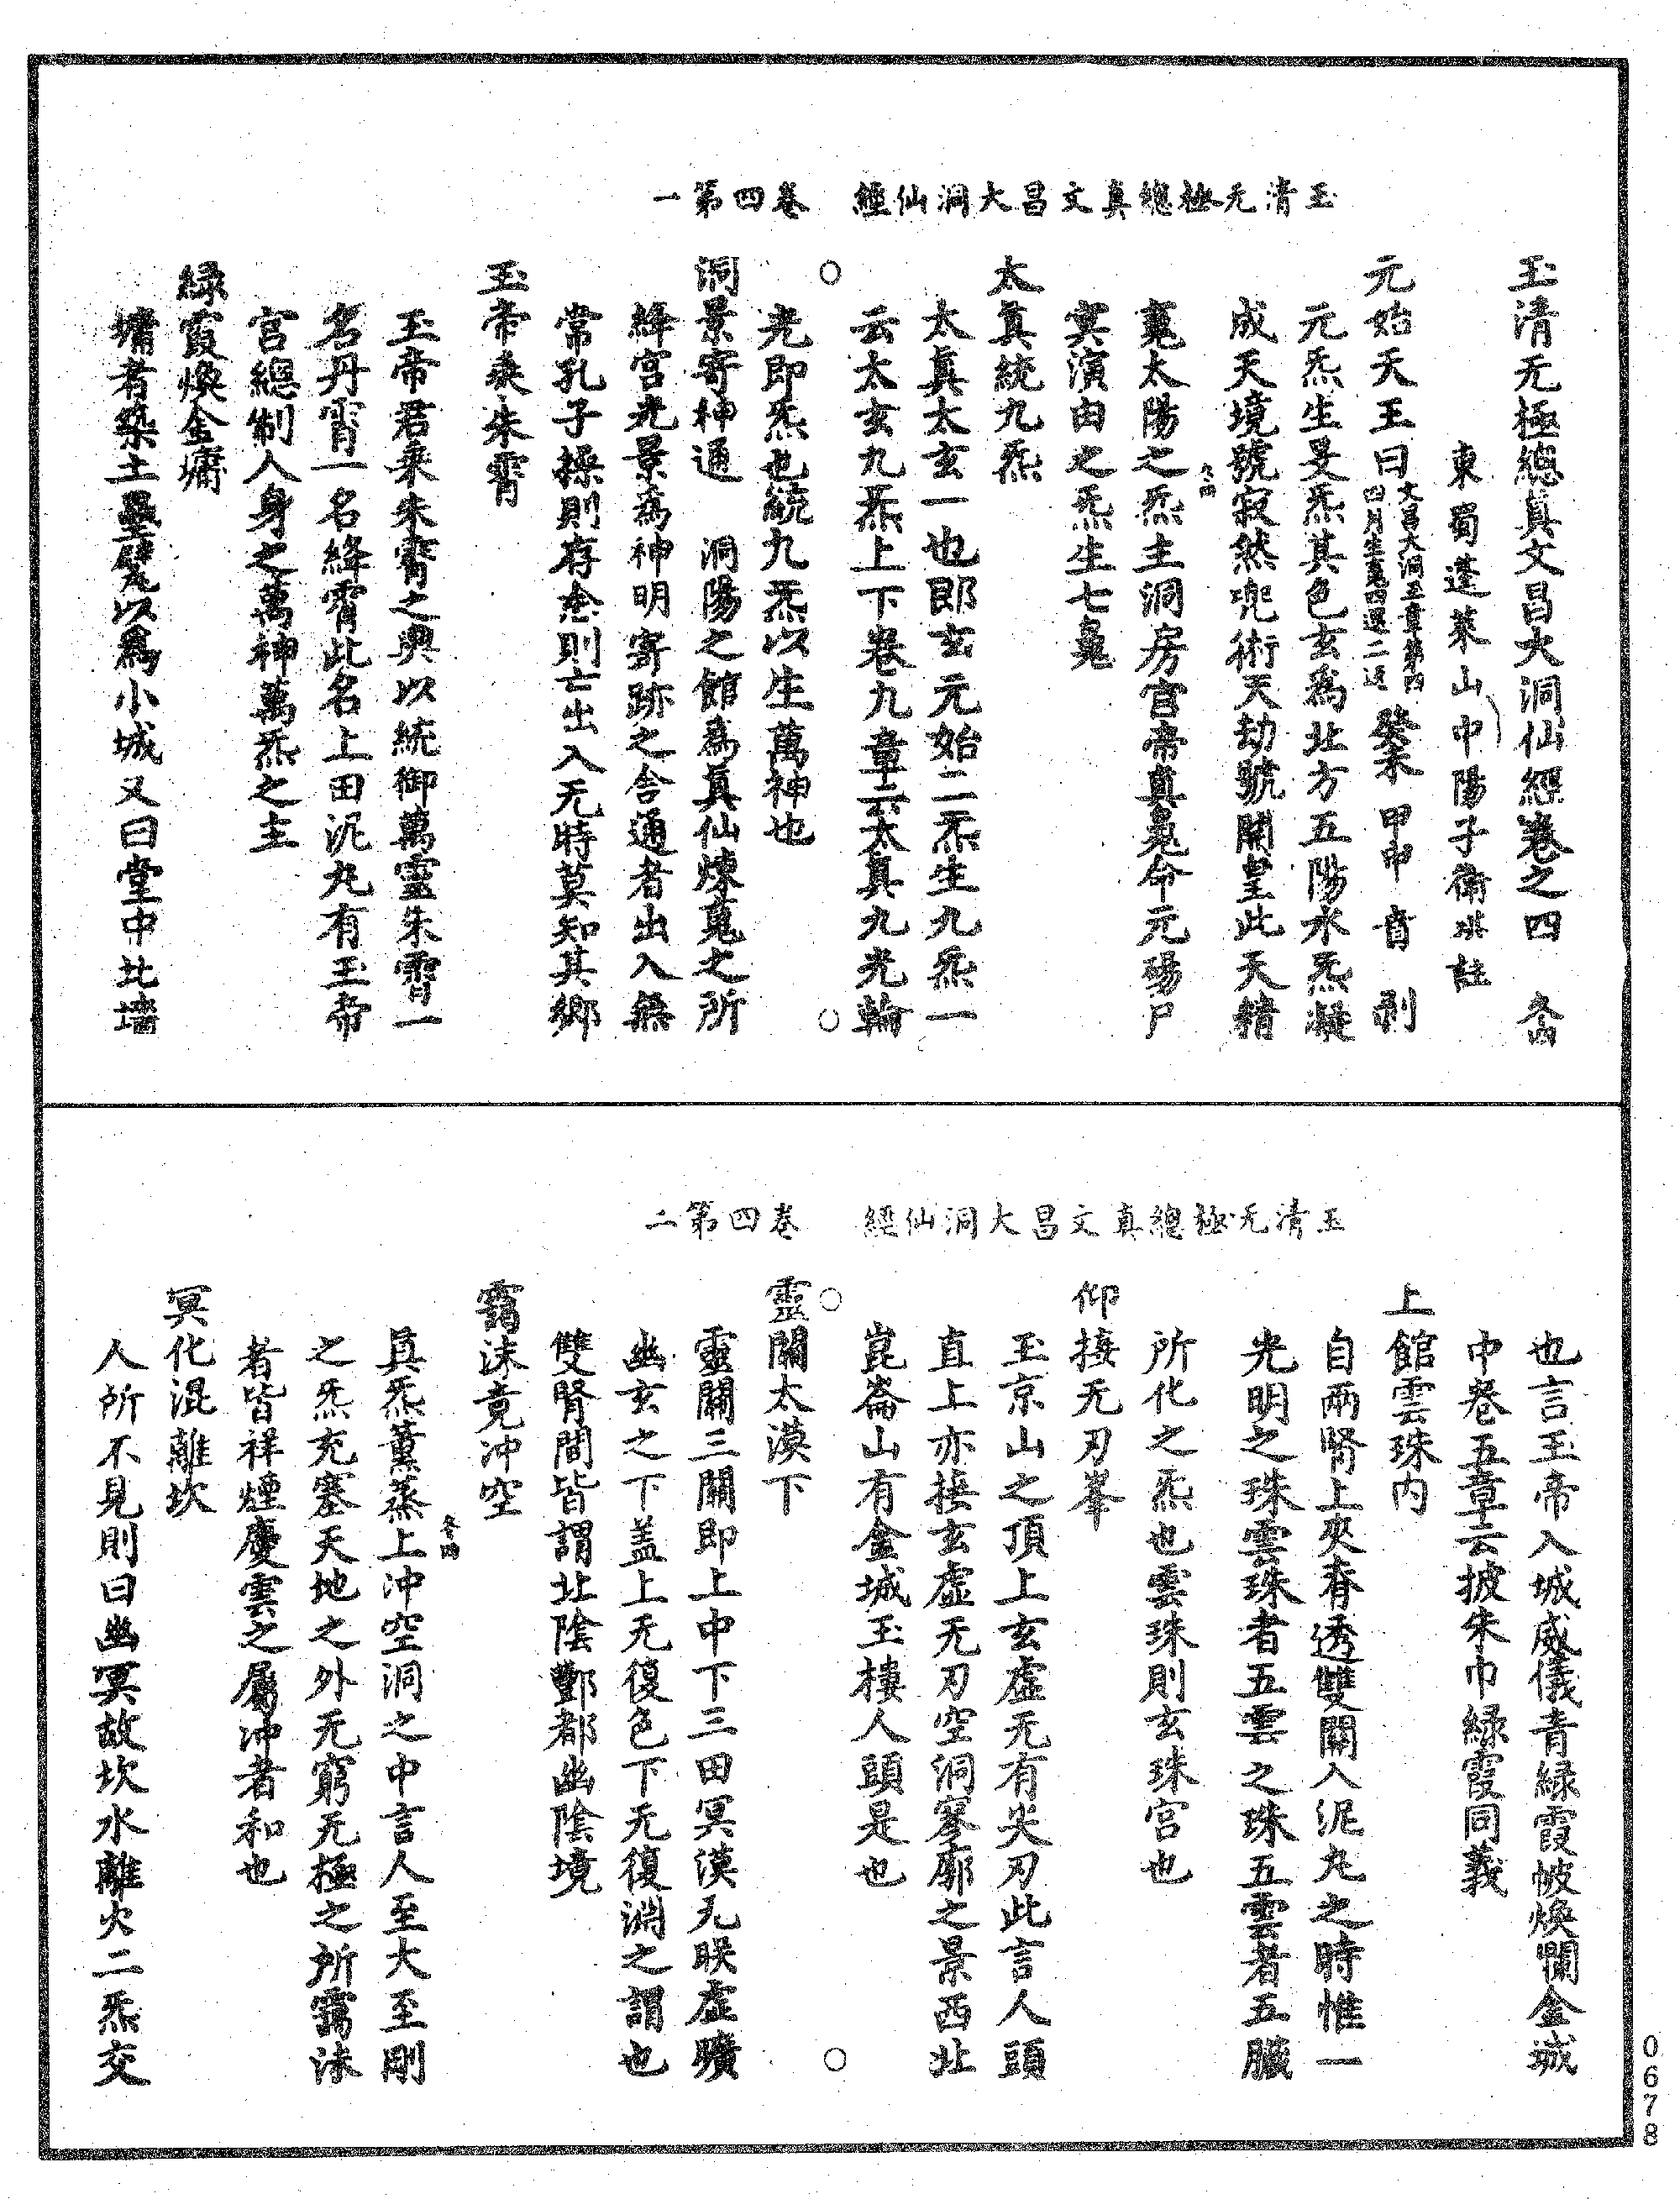 玉清无極總真文昌大洞仙經　卷四第一
玉清无極總真文昌大洞仙經卷之四
東蜀蓬萊山中陽子衞琪註
元始天王曰文昌大洞玉章第四
元炁生旻炁其色玄爲北方五陽水炁凝
成天境號寂然兜術天劫號開皇此天精
冕太陽之炁主洞房宮帝真冕命元陽尸
冥演由之炁生七冕
太真統九炁
太真太玄一也即玄元始二炁生九炁一
云太玄九炁上下卷九章云太真九光輪
光即炁也統九炁以生萬神也
洞景寄神通　洞陽之館爲真仙煉冕之所
絳宮光景爲神明寄跡之舍通者出入無
常孔子操則存舍則亡出入无時莫知其鄉
玉帝乘朱霄
玉帝君乘朱霄之輿以統御萬靈朱霄一
名丹霄一名絳霄此名上田泥丸有玉帝
宮總制人身之萬神萬炁之主
綠霞煥金墉
墉者築土壘壁以爲小城又曰堂中北墻
玉清无極總真文昌大洞仙經　卷四第二
也言玉帝入城威儀青綠霞帔煥爛金城
中卷五章云披朱巾綠霞同義
上館雲珠內
自兩腎上夾脊透雙關入泥丸之時惟一
光明之珠雲珠者五雲之珠五雲者五臟
所化之炁也雲珠則玄珠宮也
仰接无刃峯
玉京山之頂上玄虛无有尖刃此言人頭
直上亦接玄虛无刃空洞寥廓之景西北
崑崙山有金城玉樓人頭是也
靈關太漠下
靈關三關即上中下三田冥漠无眹虛曠
幽玄之下蓋上无復色下无復淵之謂也
雙腎間皆謂北陰酆都幽陰境
靄沫竟沖空
真炁薰蒸上沖空洞之中言人至大至剛
之炁充塞天地之外无窮无極之所靄沫
者皆祥煙慶雲之屬沖者和也
冥化混離坎
人所不見則曰幽冥故坎水離火二炁交
0678